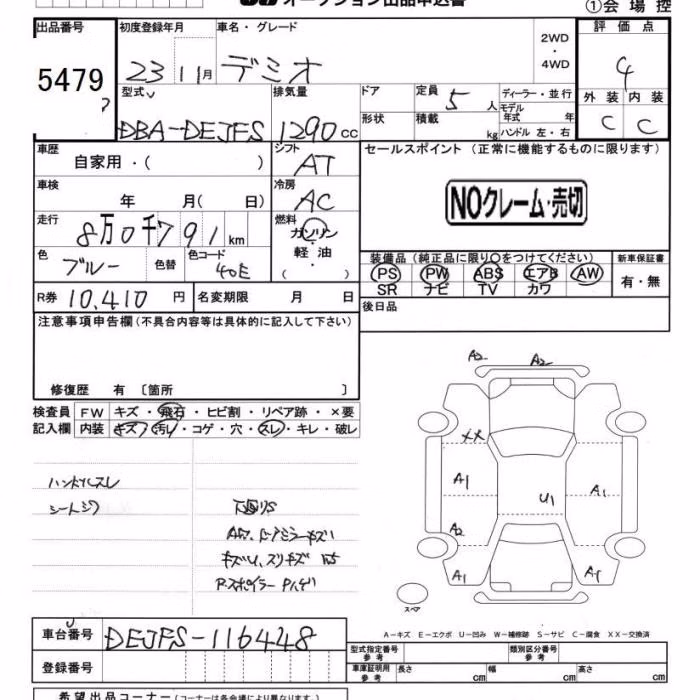 オークション出品申込書
①会場控
出品番号 初度登録年月 車名・グレード 2WD・4WD 評価点
5479 23 11月 デミオ 4
型式 排気量 ドア 定員 5人 ディーラー・並行 外装 内装
DBA-DEJFS 1290cc 形状 積載 kg モデル年式 年 ハンドル 左・右 C C
車歴 自家用・( ) シフト AT セールスポイント(正常に機能するものに限ります)
車検 年 月( 日) 冷房 AC NOクレーム・売切
走行 8万0千791km 燃料 ガソリン・軽油・( )
色 ブルー 色替 色コード 40E 装備品(純正品に限り○をつけてください) 新車保証書
PS PW ABS エアB AW 有・無
SR ナビ TV カワ
R券 10,410円 名変期限 月 日 後日品
注意事項申告欄(不具合内容等は具体的に記入して下さい)
修復歴 有〔箇所 〕
検査員 FW キズ・飛石・ヒビ割・リペア跡・×要
記入欄 内装 キズ・汚レ・コゲ・穴・スレ・キレ・破レ
ハンドルスレ
シートシワ
下回りS
A2 A2
XX
A1 U1 A1
A2
A1
スペア
A-キズ E-エクボ U-凹み W-補修跡 S-サビ C-腐食 XX-交換済
車台番号 DEJFS-116428
登録番号
型式指定番号 参考 類別区分番号 参考
車庫証明用 参考 長さ cm 幅 cm 高さ cm
希望出品コーナー(コーナーは各会場により異なります)